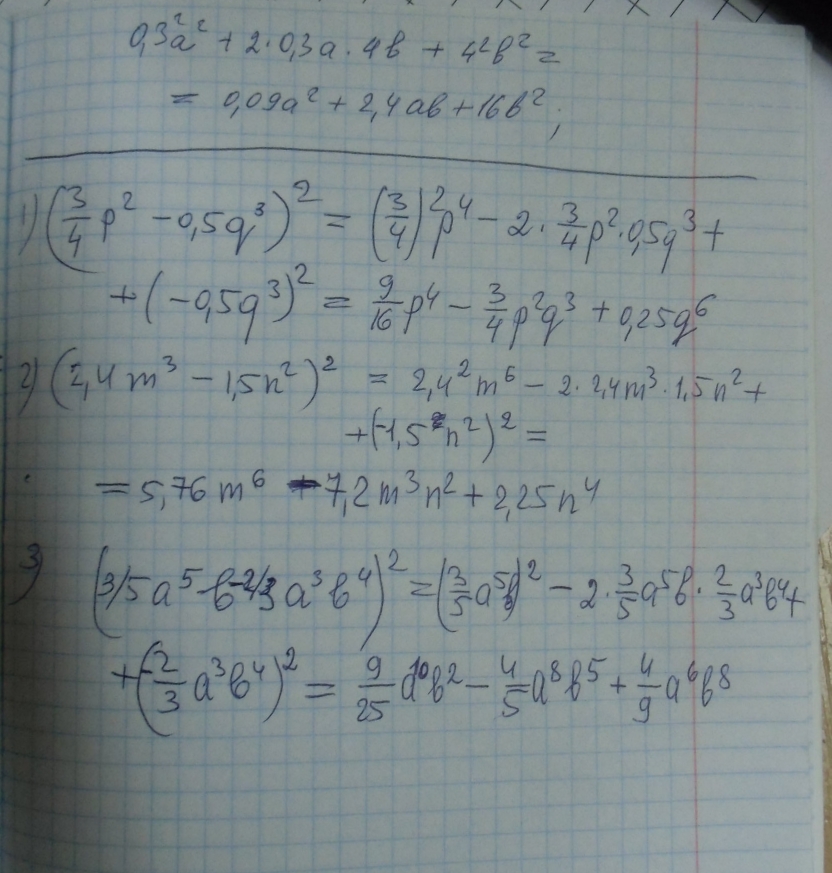 0,3²a² + 2·0,3a·4b + 4²b² =
= 0,09a² + 2,4ab + 16b²;
1) (3/4 p² - 0,5q³)² = (3/4)² p⁴ - 2·3/4 p²·0,5q³ +
+ (-0,5q³)² = 9/16 p⁴ - 3/4 p²q³ + 0,25q⁶
2) (2,4m³ - 1,5n²)² = 2,4²m⁶ - 2·2,4m³·1,5n² +
+ (-1,5 n²)² =
= 5,76m⁶ - 7,2m³n² + 2,25n⁴
3) (3/5a⁵b-2/3a³b⁴)² = (3/5 a⁵b)² - 2·3/5 a⁵b·2/3 a³b⁴ +
+ (-2/3 a³b⁴)² = 9/25 a¹⁰b² - 4/5 a⁸b⁵ + 4/9 a⁶b⁸